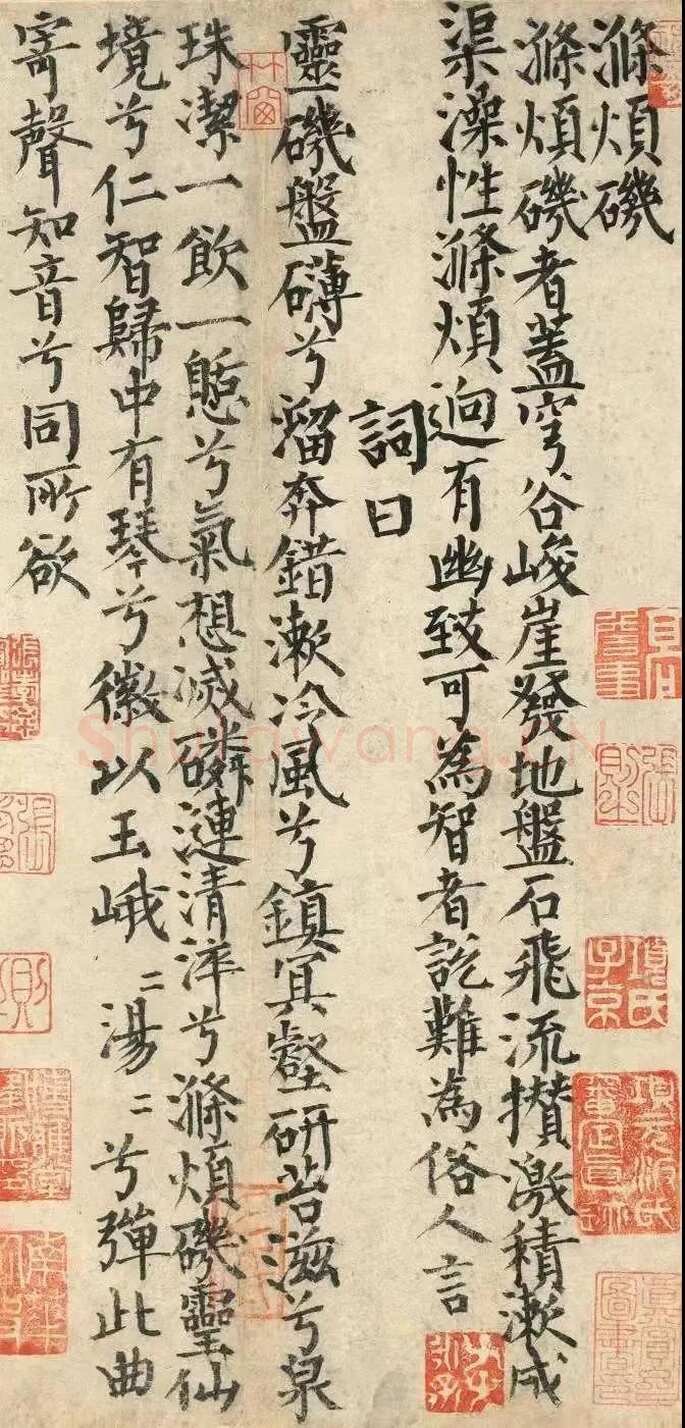 滌煩磯
滌煩磯者蓋穹谷峻崖發地盤石飛流攅激積漱成
渠澡性滌煩逈有幽致可為智者說難為俗人言
詞曰
靈磯盤礴兮溜奔錯漱冷風兮鎮冥壑研苔滋兮泉
珠潔一飲一憩兮氣想滅磷漣清渟兮滌煩磯靈仙
境兮仁智歸中有琴兮徽以玉峨〻湯〻兮彈此曲
寄聲知音兮同所欲
項氏子京